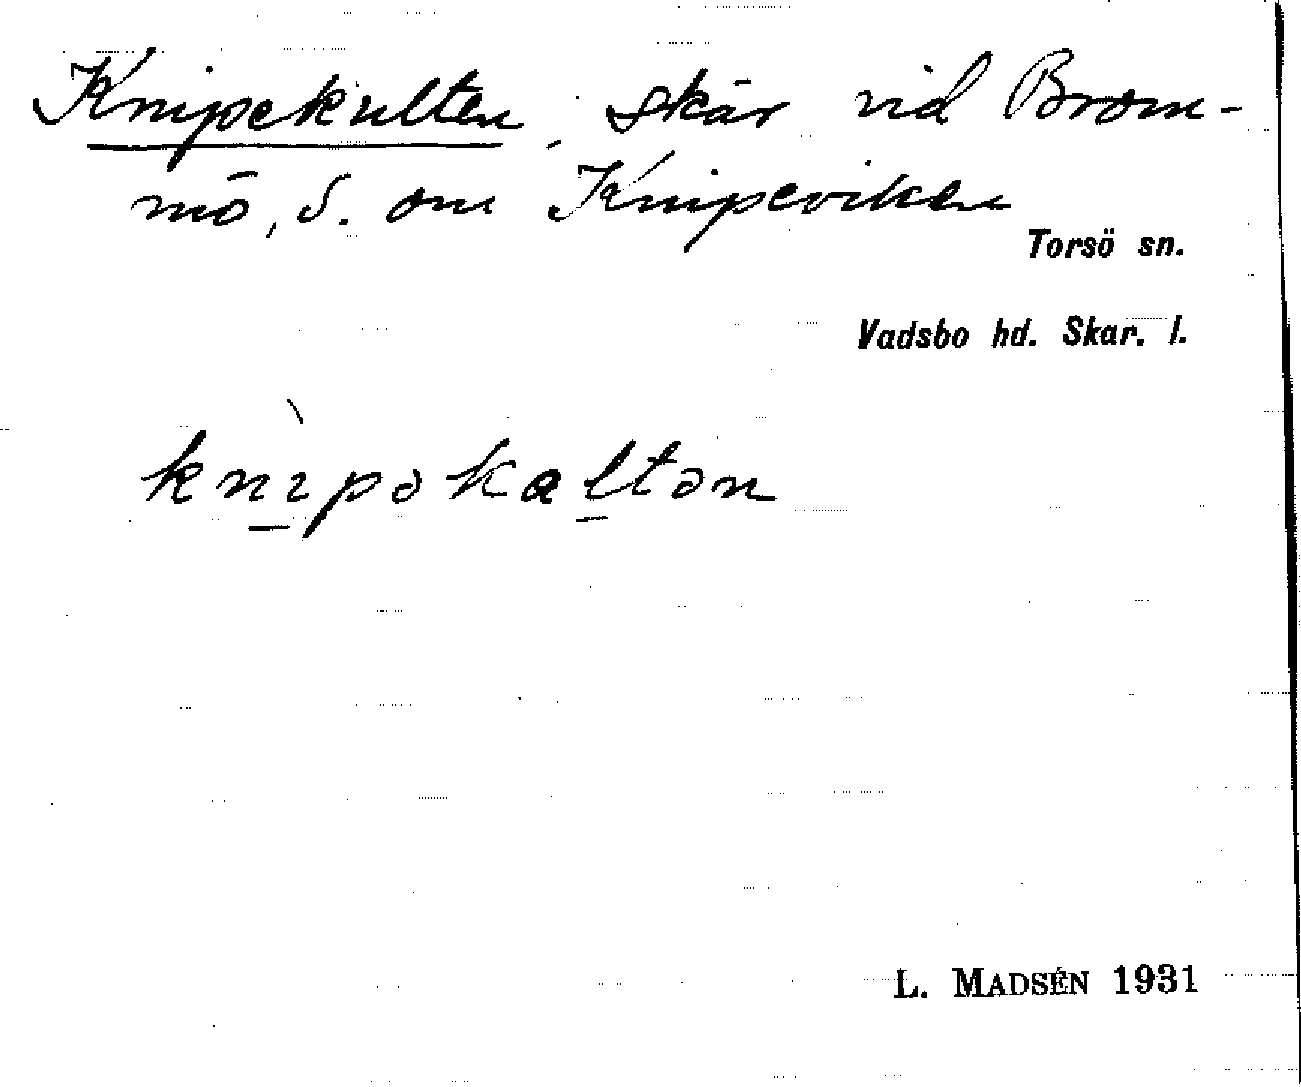 Knipekulten, skär vid Brom-
mö, S. om Knipeviken
Torsö sn.
Vadsbo hd. Skar. l.
knìpəkaltən
L. MADSÉN 1931